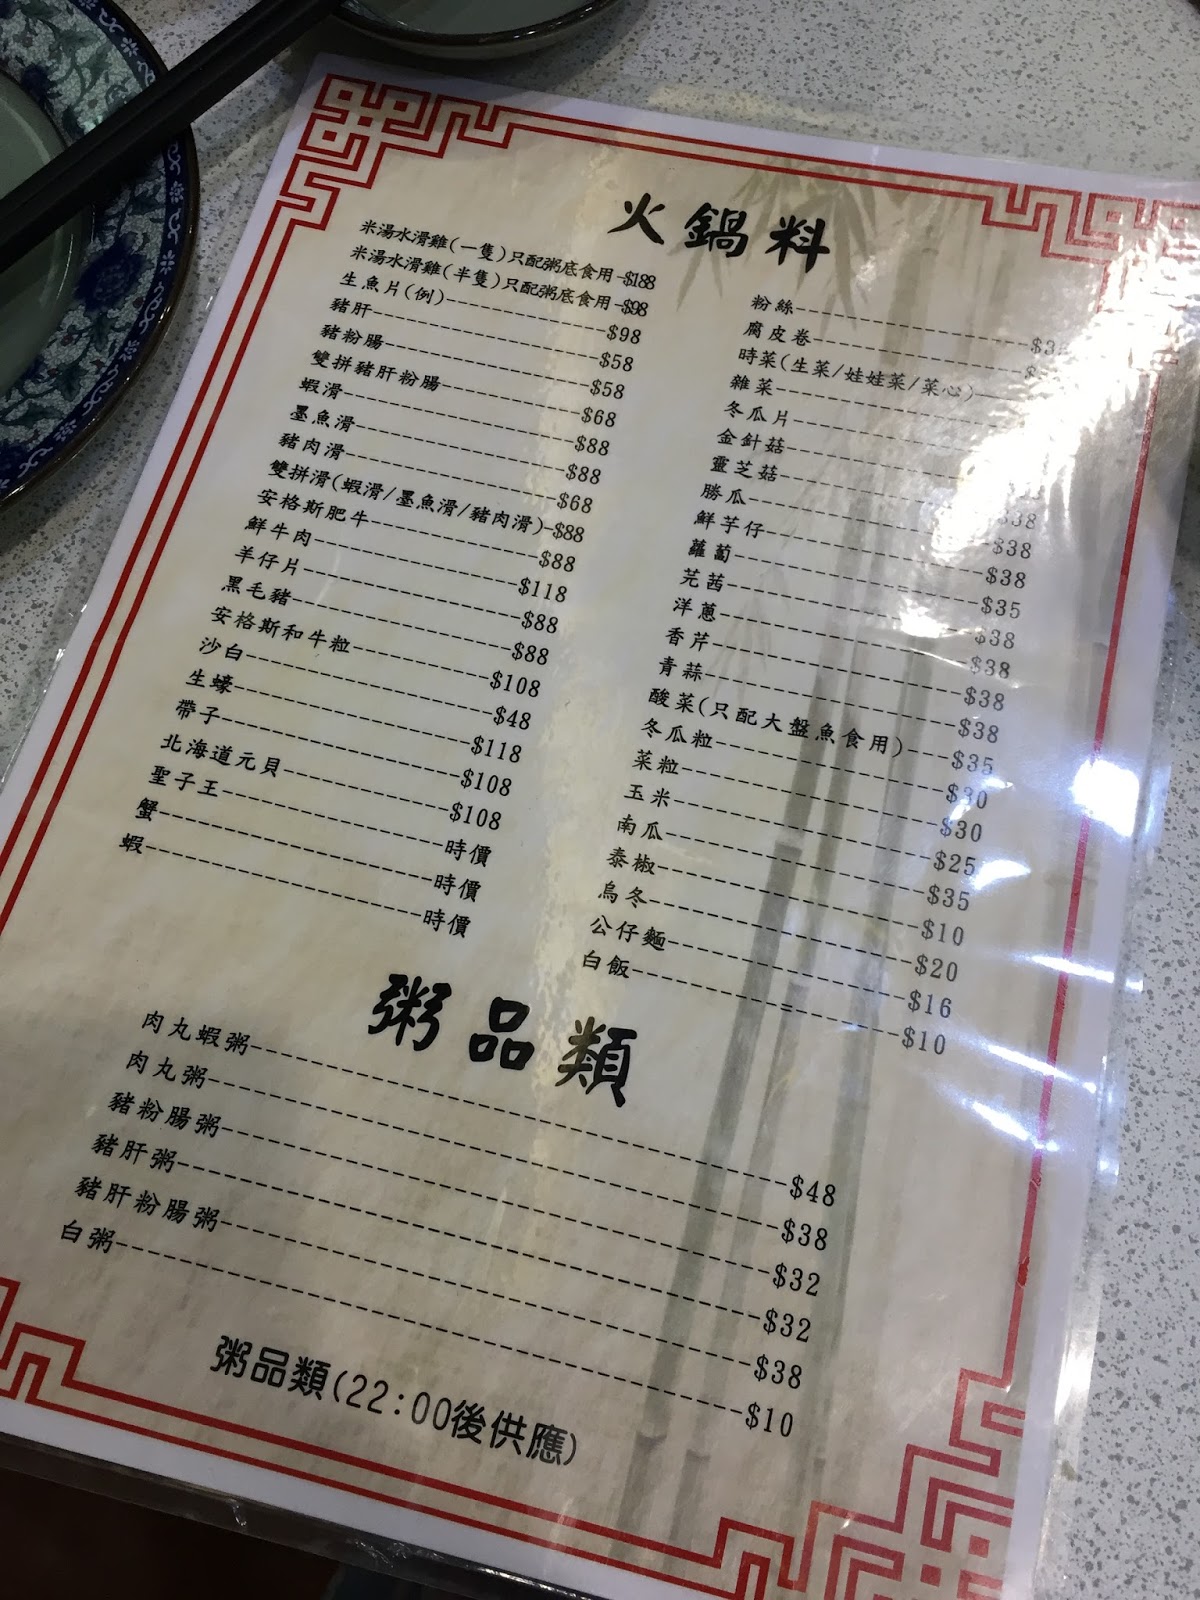 火鍋料
米湯水滑雞(一隻)只配粥底食用-$188
米湯水滑雞(半隻)只配粥底食用-$98
生魚片(例)----------------$98
豬肝----------------$58
豬粉腸----------------$58
雙拼豬肝粉腸----------------$68
蝦滑----------------$88
墨魚滑----------------$88
豬肉滑----------------$68
雙拼滑(蝦滑/墨魚滑/豬肉滑)-$88
安格斯肥牛----------------$88
鮮牛肉----------------$118
羊仔片----------------$88
黑毛豬----------------$88
安格斯和牛粒----------------$108
沙白----------------$48
生蠔----------------$118
帶子----------------$108
北海道元貝----------------$108
聖子王----------------時價
蟹----------------時價
蝦----------------時價
粉絲----------------
腐皮卷----------------
時菜(生菜/娃娃菜/菜心)----
雜菜----------------
冬瓜片----------------
金針菇----------------
靈芝菇----------------$38
勝瓜----------------$38
鮮芋仔----------------$38
蘿蔔----------------$35
芫茜----------------$38
洋蔥----------------$38
香芹----------------$38
青蒜----------------$38
酸菜(只配大盤魚食用)---$35
冬瓜粒----------------$30
菜粒----------------$30
玉米----------------$25
南瓜----------------$35
泰椒----------------$10
烏冬----------------$20
公仔麵----------------$16
白飯----------------$10
粥品類
肉丸蝦粥----------------$48
肉丸粥----------------$38
豬粉腸粥----------------$32
豬肝粥----------------$32
豬肝粉腸粥----------------$38
白粥----------------$10
粥品類(22:00後供應)